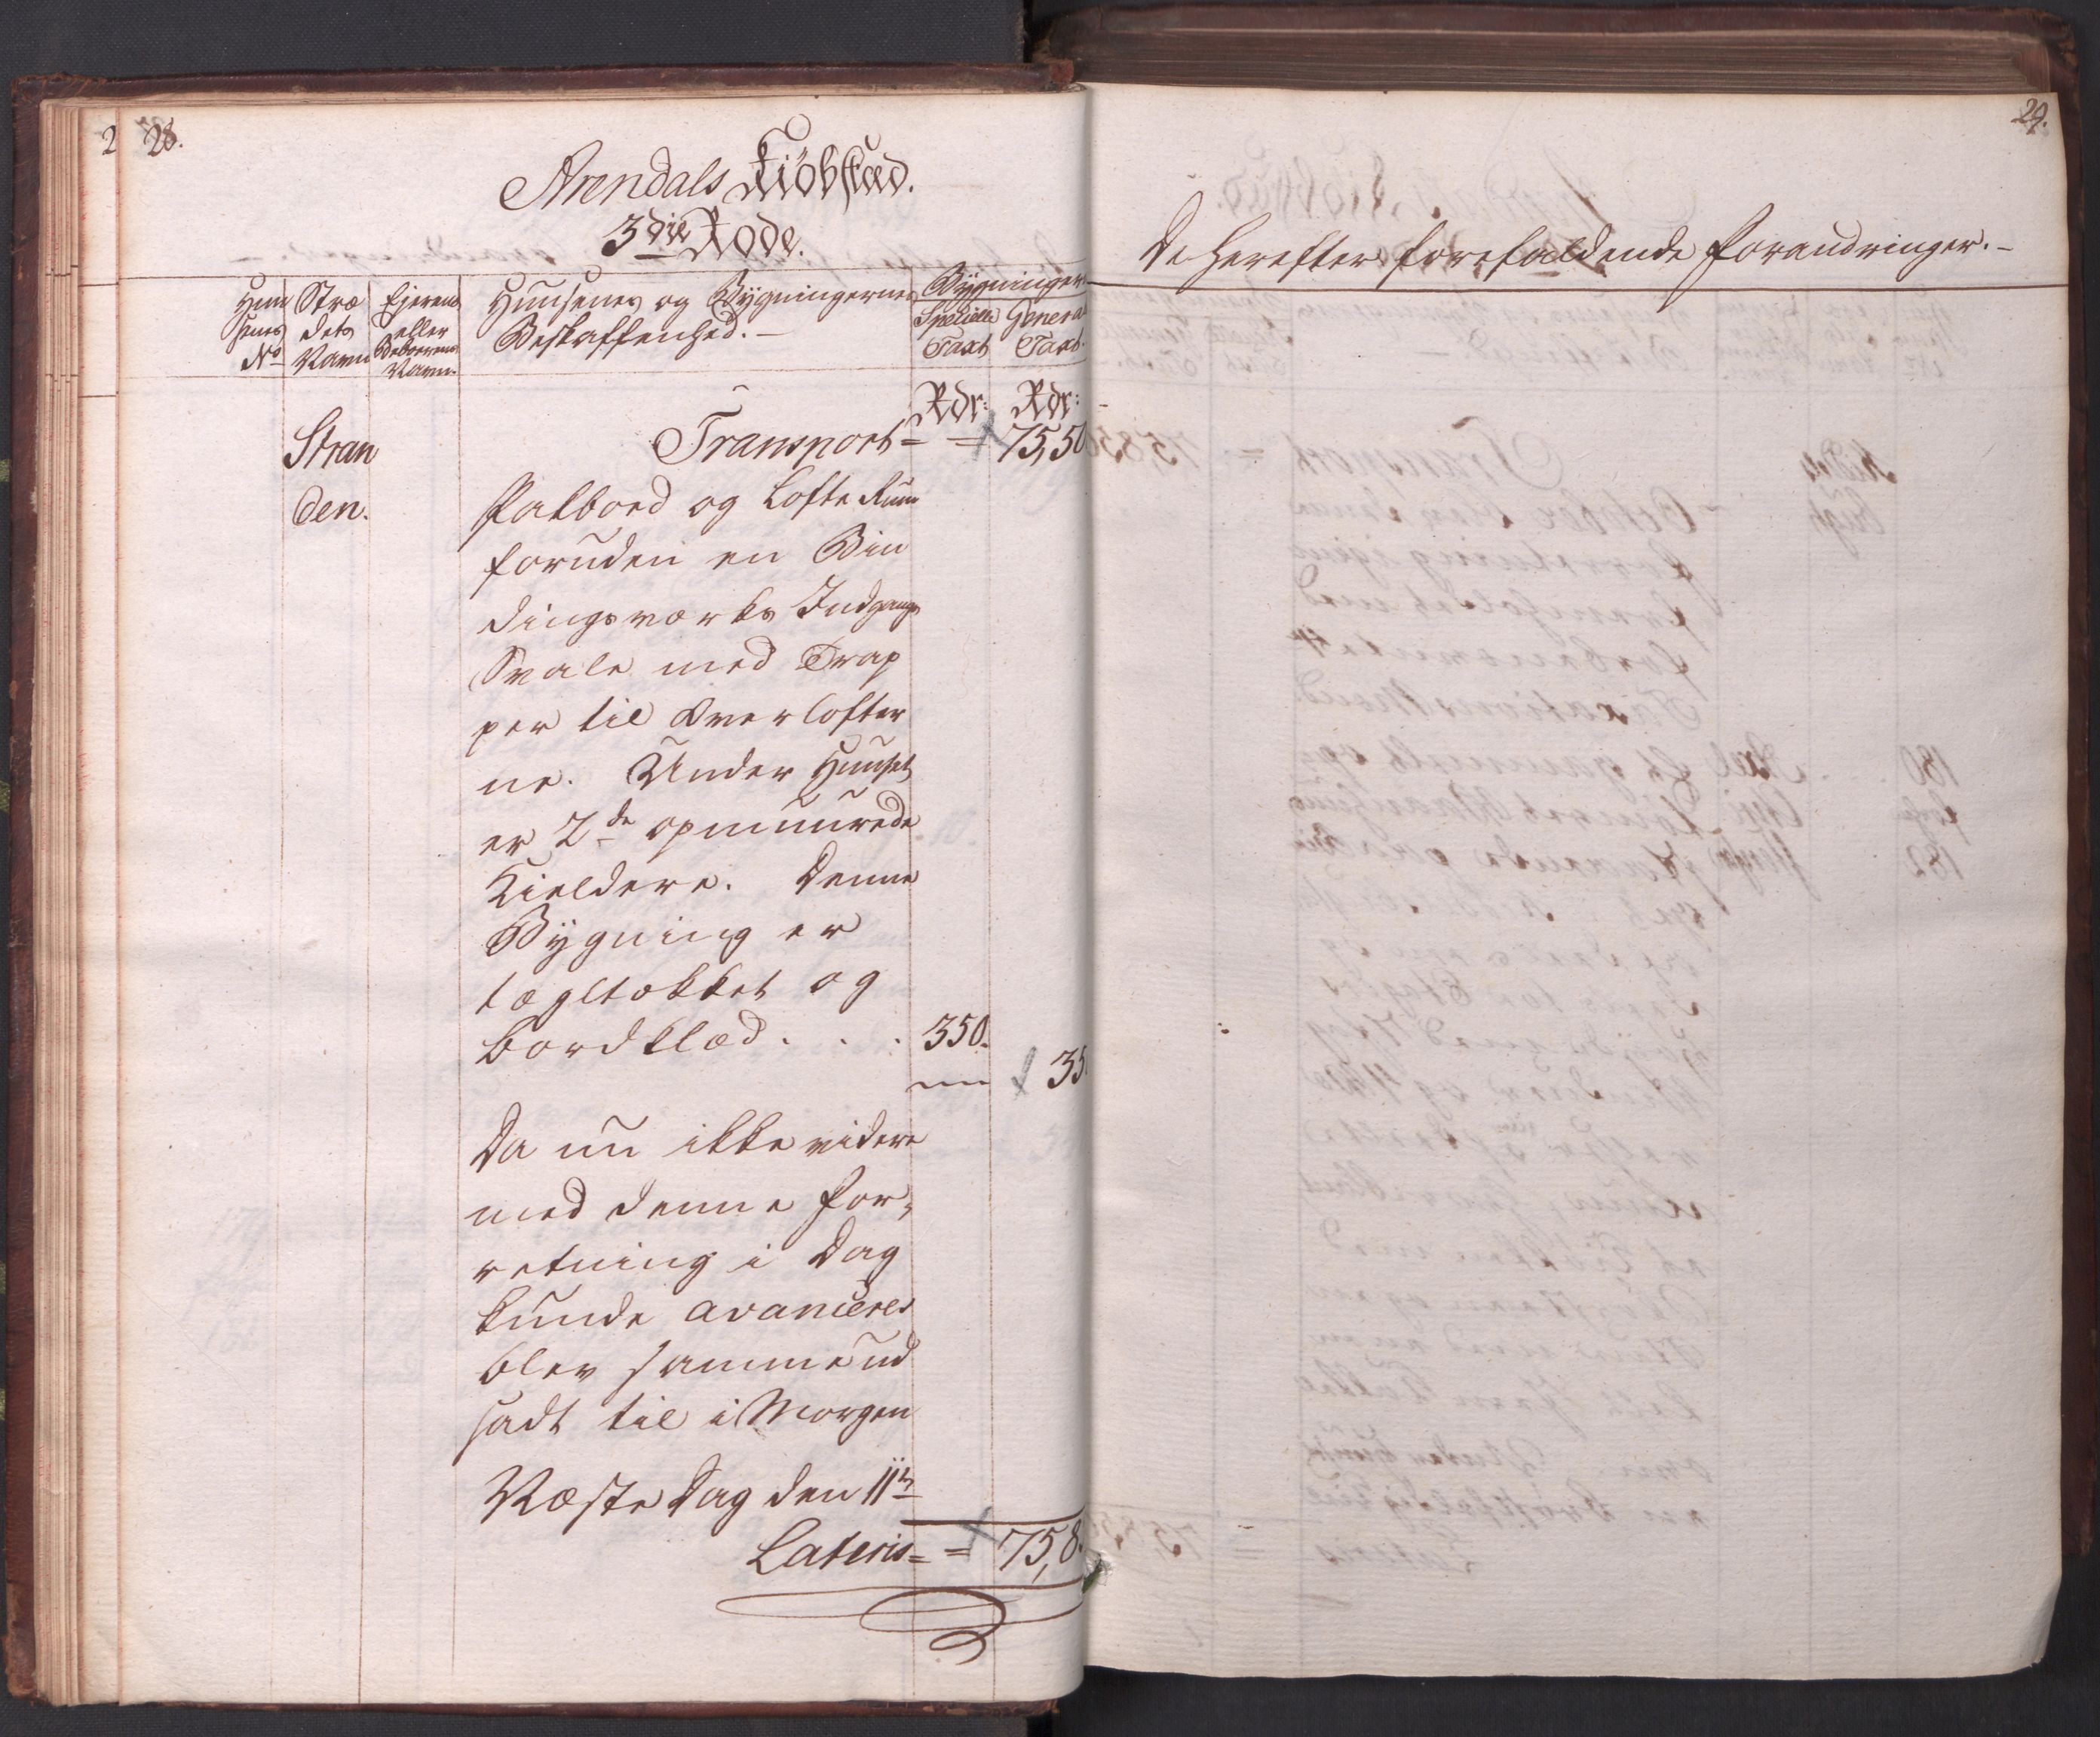 2
28.
Arendals Kiöbstæd.
3die Rode.
Huu
senes
No
Stræ
dets
Navn
Ejerens
eller
Beboerens
Navn.
Huusenes og Bygningernes
Beskaffenhed. -
Bygninger
Specielle
Taxt
Genera
Taxt.
Rdr: Rdr:
Transport = = 75,50
Stran
den.
Pakboed og Lofte Rum
foruden en Bin
dingsværks Indgangs
Svale med Trap
per til Overlofter
ne. Under Huuset
er 2de opmuurede
Kieldere. Denne
Bygning er
tægltækket og
bordklæd . . . 350.
35
Da nu ikke videre
med denne for,
retning i Dag
kunde avanceres
blev samme ud
sadt til i Morgen
Næste Dag den 11te
Lateris = = 75,8
29.
De herefter forefaldende Forandringer. -